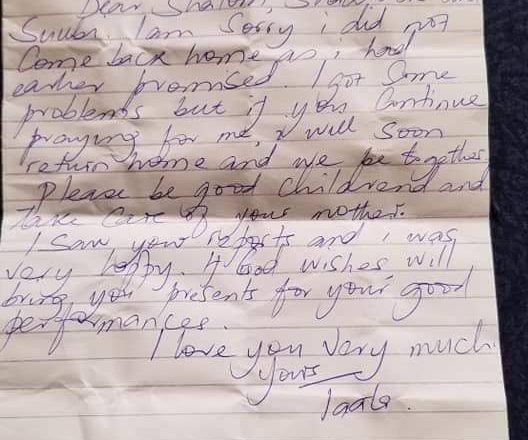 Dear Shalom,
Suubi. I am sorry i did not
Come back home as i had
earlier promised. I got some
problems but if you Continue
praying for me, I will soon
return home and we be together
Please be good childrend and
Take care of your mother.
I saw your reports and i was
very happy. If God wishes, will
bring you presents for your good
performances.
I love you very much.
Yours
Taata.